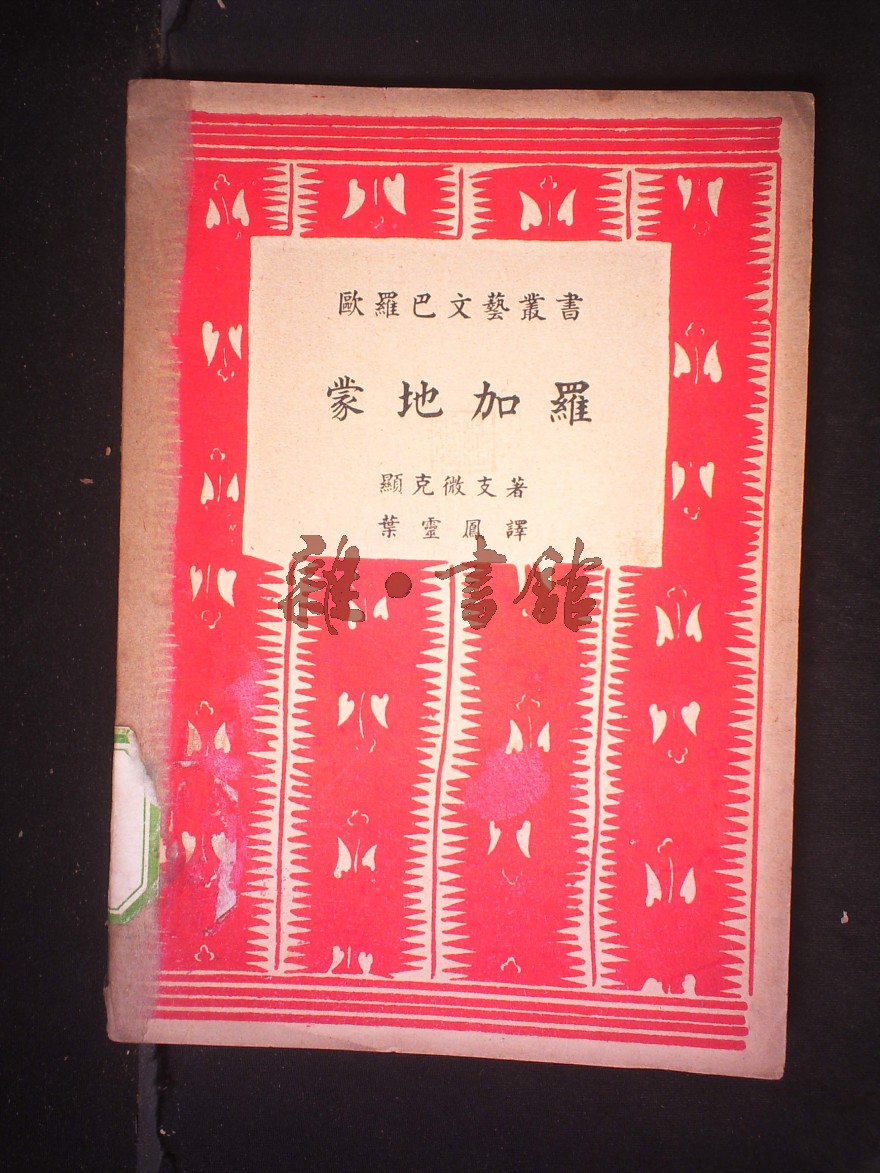 歐羅巴文藝叢書
蒙地加羅
顯克微支著
葉靈鳳譯
雜·書館